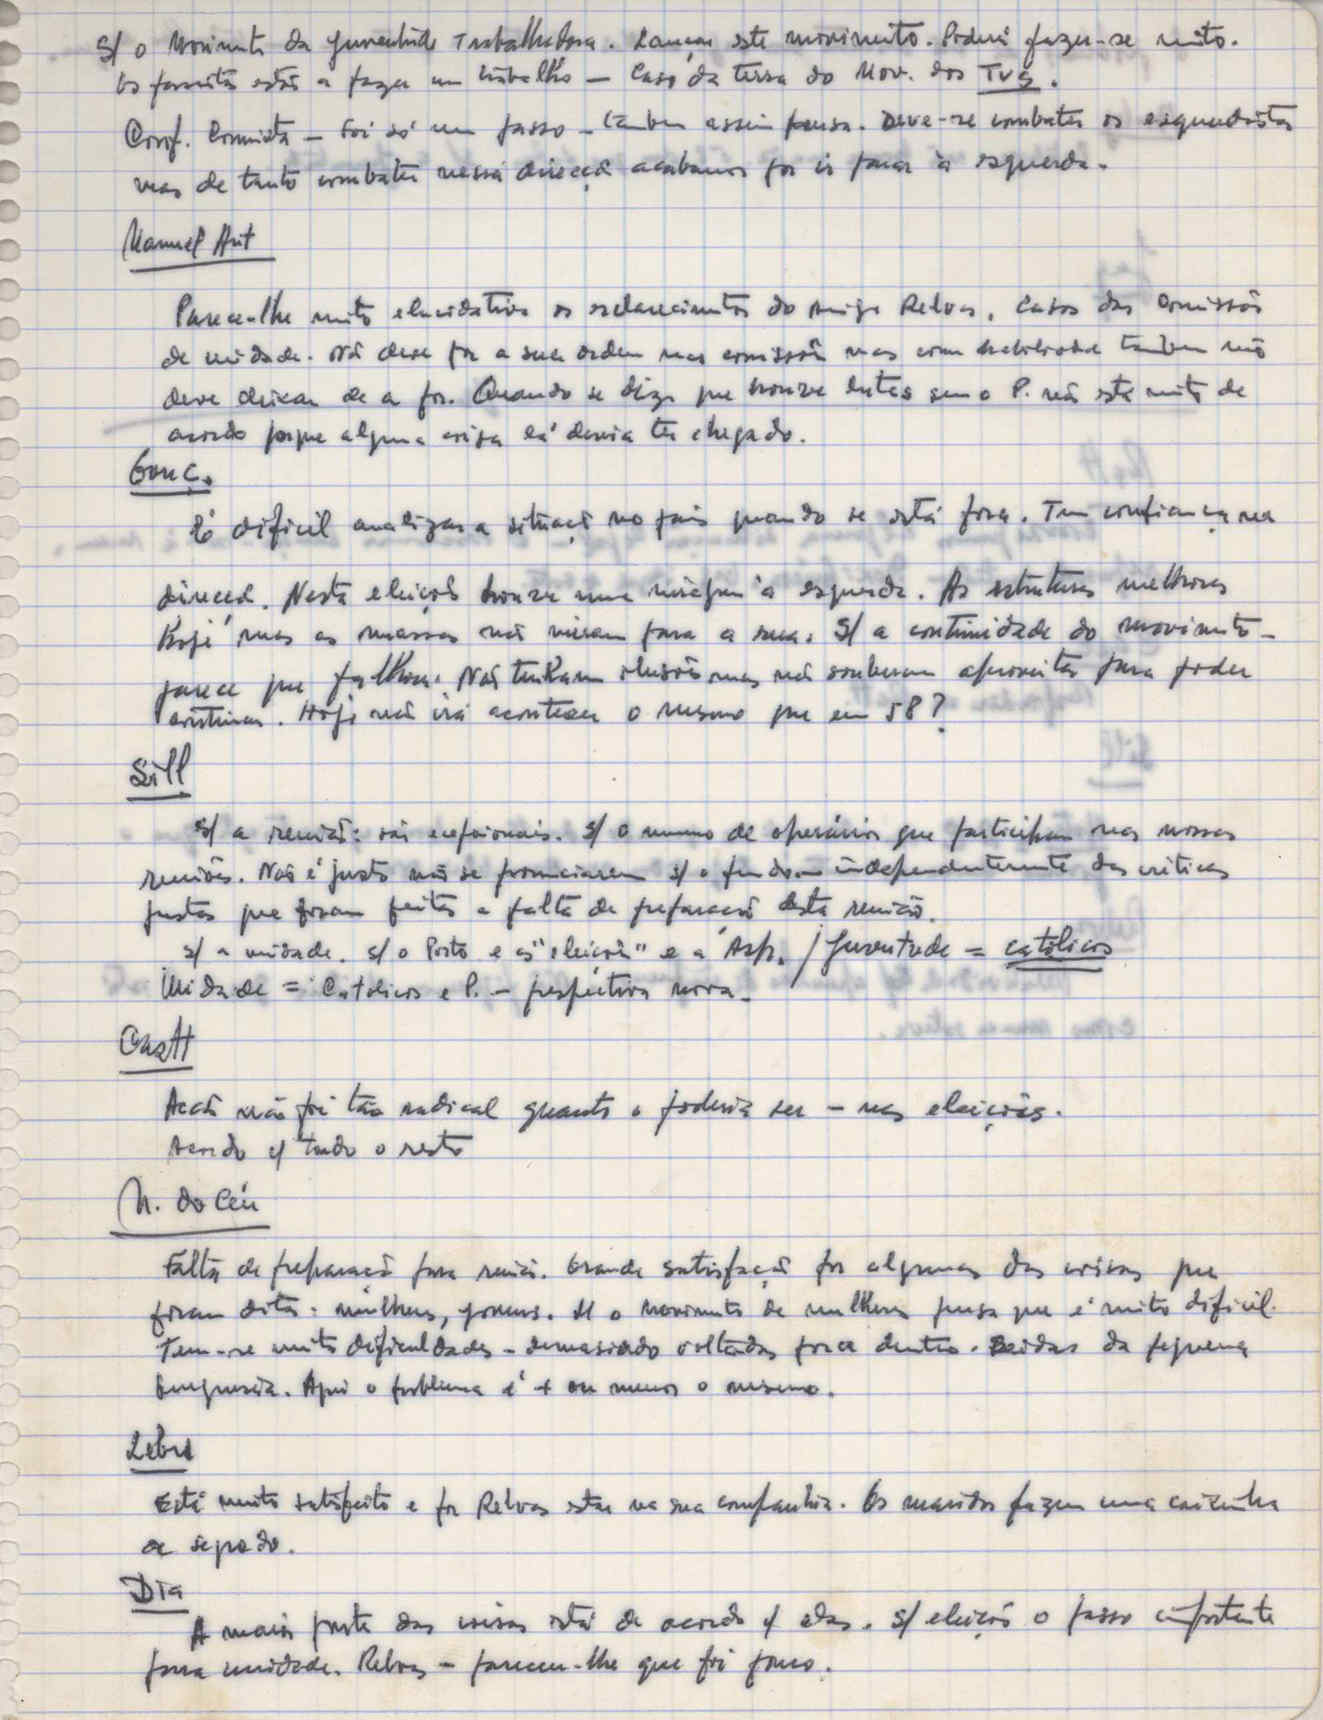 S/ o Movimento da Juventude Trabalhadora. Lançar este movimento. Poderá fazer-se muito.
Os fascistas estão a fazer um trabalho — Caso da terra do Mov. dos TVS.
Conf. Comunista — Foi só um passo — também assim pensa. Deve-se combater os esquerdistas
mas de tanto combater nessa direcção acabamos por ir parar à esquerda.
Manuel Ant
Parece-lhe muito elucidativo os esclarecimentos do amigo Relvas. Casos das Comissões
de unidade. Não deve por a sua ordem nas comissões mas com habilidade também não
deve deixar de a por. Quando se diz que houve lutas sem o P. não está muito de
acordo porque alguma coisa lá devia ter chegado.
Gonç.
É difícil analizar a situação no país quando se está fora. Tem confiança na
direcção. Nesta eleições houve uma viragem à esquerda. As estruturas melhores
hoje mas as massas não vieram para a rua. S/ a continuidade do movimento –
parece que falhou. Não tinham ilusões mas não souberam aproveitar para poder
continuar. Hoje não irá acontecer o mesmo que em 58?
Sill
S/ a reunião: são excepcionais. S/ o numero de operários que participam nas nossas
reuniões. Não é justo não se pronunciarem s/ o fundo – independentemente das críticas
justas que foram feitas à falta de preparação desta reunião.
S/ a unidade. S/ o Porto e as "eleições" e a Asp. / Juventude = católicos
Unidade = Católicos e P. – perspectiva nova.
Acção não foi tão radical quanto o poderia ser – nas eleições.
Acordo c/ tudo o resto
M. do Céu
Falta de preparação para reunião. Grande satisfação por algumas das coisas que
foram ditas: mulheres, jovens. S/ o movimento de mulheres pensa que é muito difícil.
Tem-se muitas dificuldades – demasiado voltadas para dentro. Saídas da pequena
burguesia. Aqui o problema é + ou menos o mesmo.
Lebre
Está muito satisfeito e por Relvas estar na sua companhia. Os maridos fazem uma caixinha
de segredo.
Dia
A maior parte das coisas está de acordo c/ elas. S/ eleições o passo importante
para unidade. Relvas – pareceu-lhe que foi pouco.